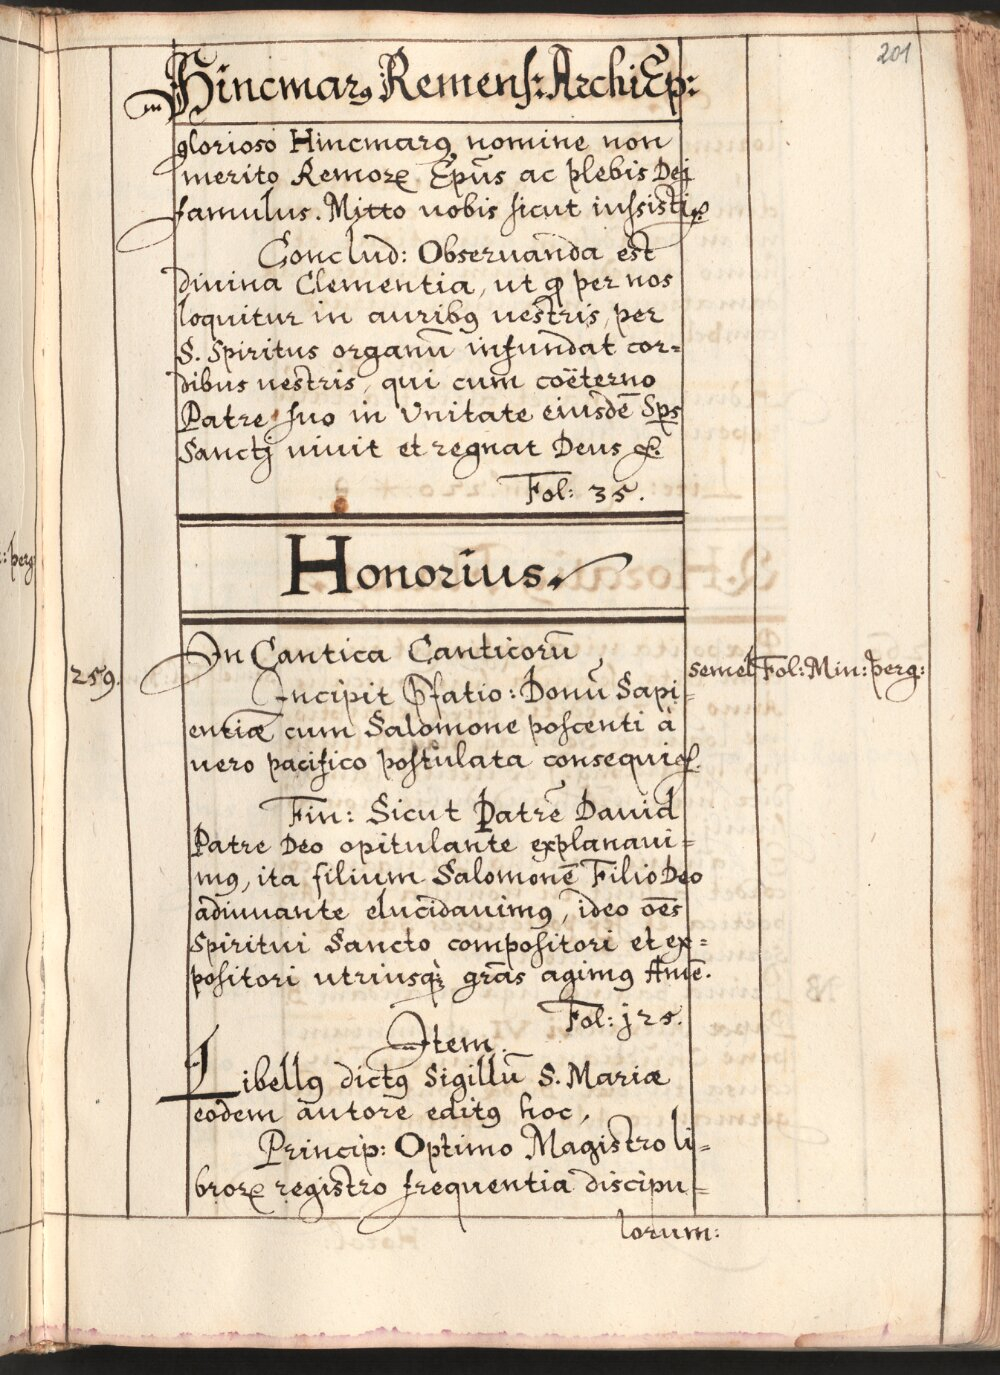 201
Hincmarꝰ Remens: ArchiEp:
in
glorioso Hincmarꝰ nomine non
merito Remorꝝ Ep̃us ac plebis Dei
famulus. Mitto uobis sicut iussisti
Conclud: Obseruanda est
diuina Clementia, ut per nos
loquitur in auribꝰ uestris, per
S. Spiritus organū infundat cor=
dibus uestris, qui cum coëterno
Patre suo in Vnitate eiusdē Sp̃s
Sanctj uiuit et regnat Deus &:
Fol: 35.
Honorius.
259.
In Cantica Canticorū
semel Fol: Min: perg:
: perg:
Incipit P̃fatio: Donū Sapi=
entiæ cum Salomone poscenti à
uero pacifico postulata consequi
Fin: Sicut Patrē Dauid
Patre Deo opitulante explanaui=
mꝰ, ita filium Salomonē Filio Deo
adiuuante elucidauimꝰ, ideo oēs
Spiritui Sancto compositori et ex=
positori utriusqꝫ grās agimꝰ Amē.
Fol: j25.
Item.
Libellꝰ dictꝰ Sigillū S. Mariæ
eodem autore editꝰ hoc,
Princip: Optimo Magistro li=
brorꝝ registro frequentia discipu=
lorum: